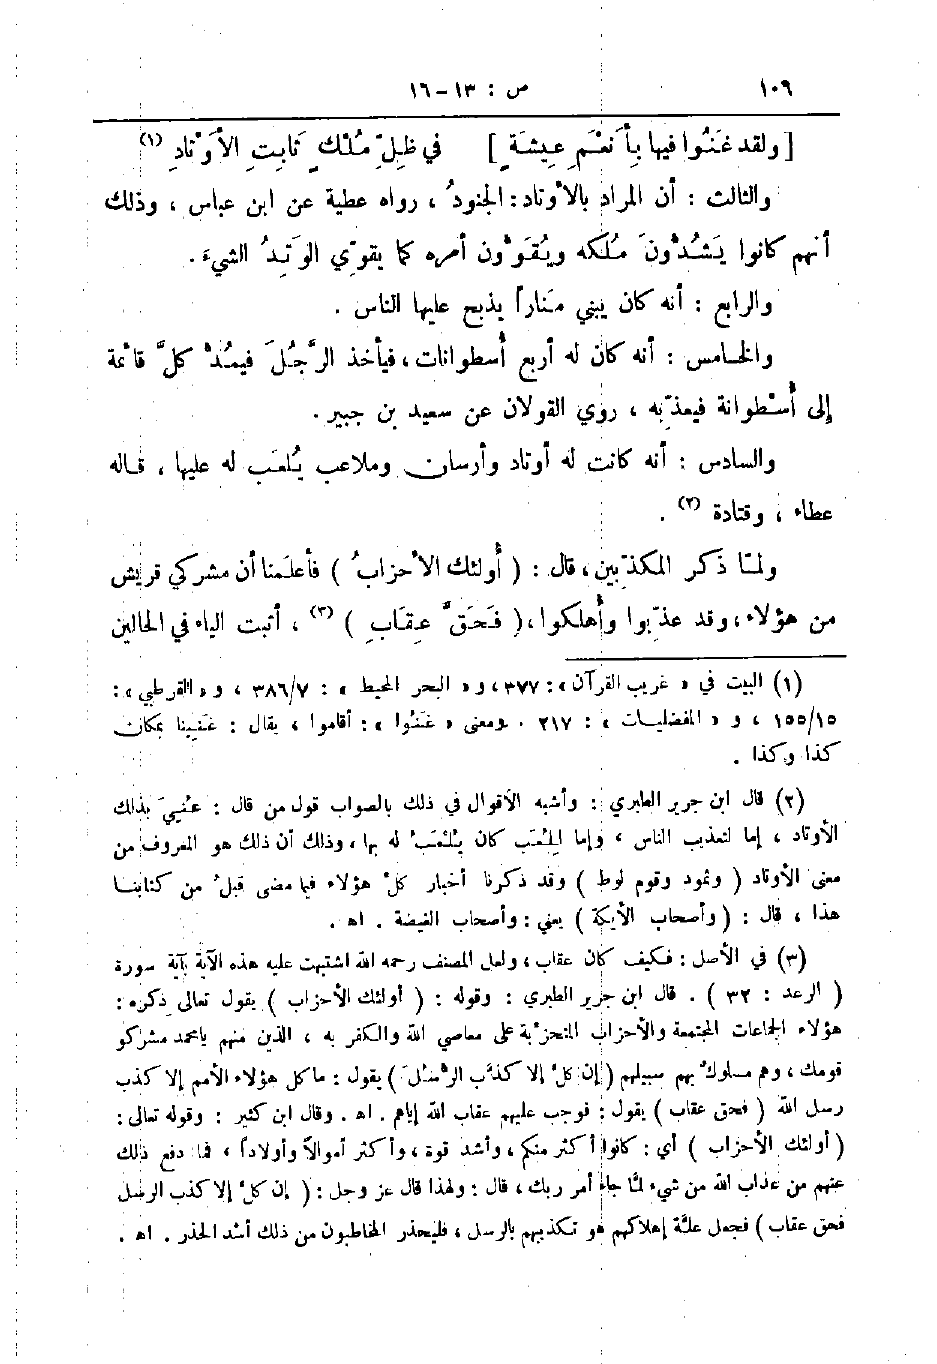 ١٠٩ ص : ١٣-١٦
[ ولقد غَنُوا فيها بِأَنعَمِ عِيشَةٍ ] في ظِلِّ مُلْكٍ ثابِتِ الأَوْتادِ (١)
والثالث : أن المراد بالأوتاد : الجنودُ ، رواه عطية عن ابن عباس ، وذلك
أنهم كانوا يَشُدُّونَ مُلكه ويُقَوُّون أمره كما يقوِّي الوَتِدُ الشيءَ .
والرابع : أنه كان يبني مناراً يذبح عليها الناس .
والخامس : أنه كان له أربع أُسطوانات ، فيأخذ الرَّجُلَ فيمُدُّ كلَّ قائمة
إلى أُسْطوانة فيعذِّبه ، روي القولان عن سعيد بن جبير .
والسادس : أنه كانت له أوتاد وأرسان وملاعب يُلعَب له عليها ، قاله
عطاء ، وقتادة (٢) .
ولمّا ذكر المكذِّبين ، قال : ( أُولئك الأحزابُ ) فأعلَمنا أن مشركي قريش
من هؤلاء ، وقد عذِّبوا وأُهلكوا ، ( فَحَقَّ عِقَابِ ) (٣) ، أثبت الياء في الحالين
(١) البيت في « غريب القرآن » : ٣٧٧ ، و « البحر المحيط » : ٣٨٦/٧ ، و « القرطبي » :
١٥٥/١٥ ، و « المفضليات » : ٢١٧ . ومعنى « غَنُوا » : أقاموا ، يقال : غَنِينا بمكان
كذا وكذا .
(٢) قال ابن جرير الطبري : وأشبه الأقوال في ذلك بالصواب قول من قال : عُنِيَ بذلك
الأوتاد ، إما لتعذيب الناس ، وإما لِلُعَب كان يُلْعَبُ له بها ، وذلك أن ذلك هو المعروف من
معنى الأوتاد ( وثمود وقوم لوط ) وقد ذكرنا أخبار كلِّ هؤلاء فيما مضى قبلُ من كتابنا
هذا ، قال : ( وأصحاب الأيكة ) يعني : وأصحاب الغيضة . اه .
(٣) في الأصل : فكيف كان عقاب ، ولعل المصنف رحمه الله اشتبهت عليه هذه الآية بآية سورة
( الرعد : ٣٢ ) . قال ابن جرير الطبري : وقوله : ( أولئك الأحزاب ) يقول تعالى ذكره :
هؤلاء الجماعات المجتمعة والأحزاب المتحزبة على معاصي الله والكفر به ، الذين منهم يا محمد مشركو
قومك ، وهم مسلوكٌ بهم سبيلهم ( إن كلٌّ إلا كذَّب الرُّسُلَ ) يقول : ما كل هؤلاء الأمم إلا كذب
رسل الله ( فحق عقاب ) يقول : فوجب عليهم عقاب الله إياهم . اه . وقال ابن كثير : وقوله تعالى :
( أولئك الأحزاب ) أي : كانوا أكثر منكم ، وأشد قوة ، وأكثر أموالاً وأولاداً ، فما دفع ذلك
عنهم من عذاب الله من شيء لمَّا جاء أمر ربك ، قال : ولهذا قال عز وجل : ( إن كلٌّ إلا كذب الرسل
فحق عقاب ) فجعل علة إهلاكهم هو تكذيبهم بالرسل ، فليحذر المخاطبون من ذلك أشد الحذر . اه .